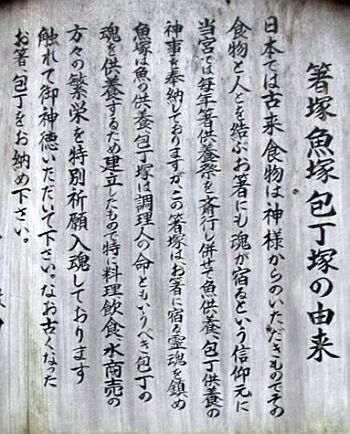 箸塚魚塚包丁塚の由来
日本では古来食物は神様からのいただきものでその
食物と人とを結ぶお箸にも魂が宿るという信仰元に
当宮では毎年箸供養祭を斎行し併せて魚供養、包丁供養の
神事を奉納しておりますが、この箸塚はお箸に宿る霊魂を鎮め
魚塚は魚の供養包丁塚は調理人の命ともいうべき包丁の
魂を供養するため建立したもので特に料理飲食水商売の
方々の繁栄を特別祈願入魂しております
触れて御神徳いただいて下さい。なお古くなった
お箸、包丁をお納め下さい。